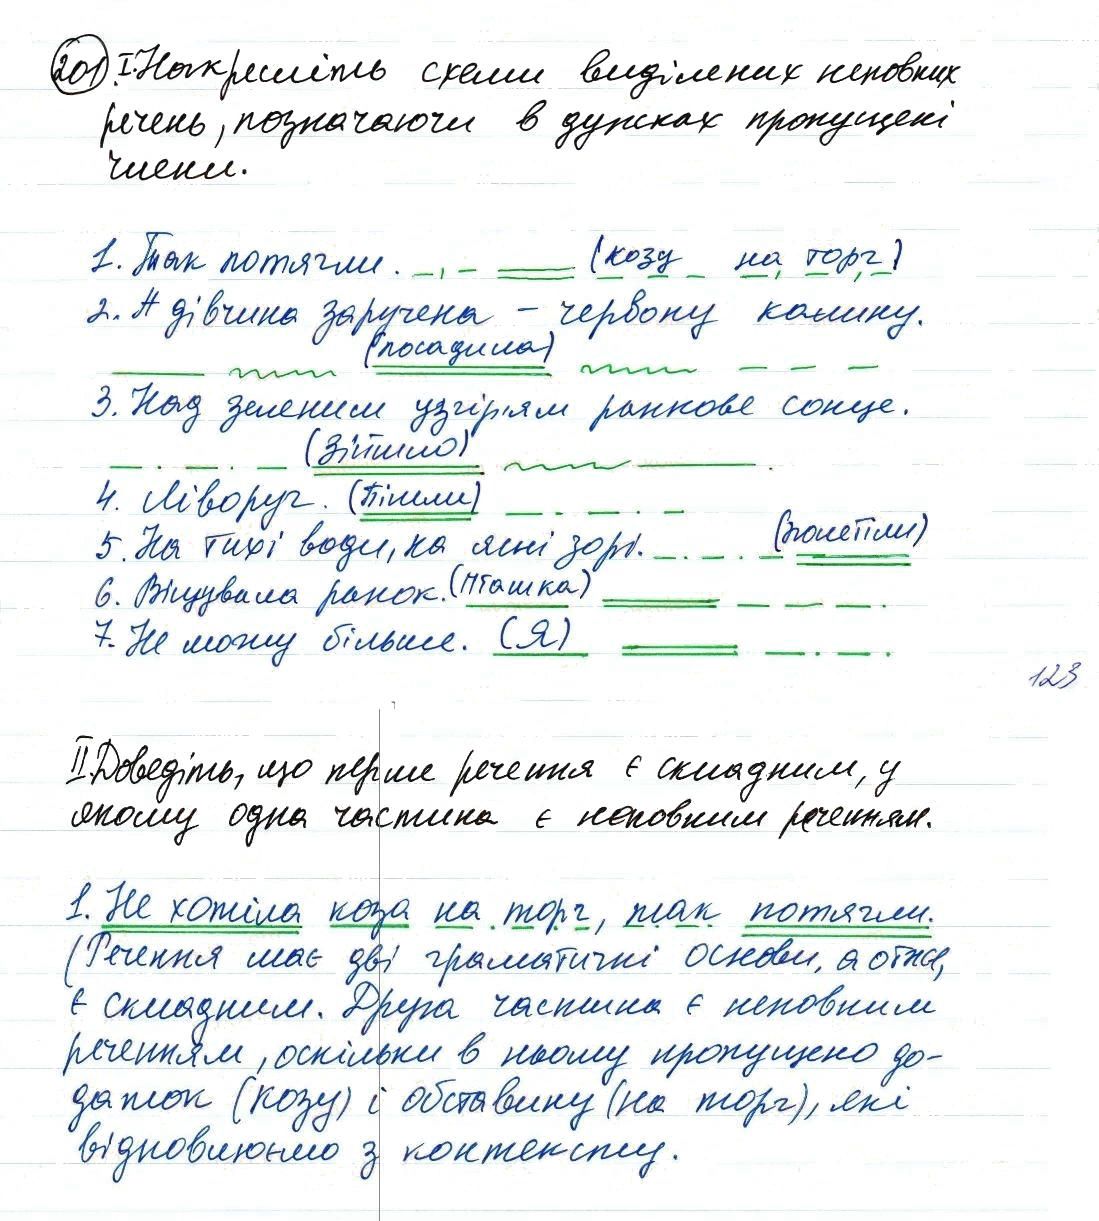 201 I. Накресліть схеми виділених неповних
речень, позначаючи в дужках пропущені
члени.
1. Так потягли. (козу на торг)
2. А дівчина заручена – червону калину.
(посадила)
3. Над зеленим узгір'ям ранкове сонце.
(Зійшло)
4. Ліворуч. (Пішли)
5. На тихі води, на ясні зорі. (полетіли)
6. Віщувала ранок. (Пташка)
7. Не можу більше. (Я)
123
II. Доведіть, що перше речення є складним, у
якому одна частина є неповним реченням.
1. Не хотіла коза на торг, так потягли.
(Речення має дві граматичні основи, а отже,
є складним. Друга частина є неповним
реченням, оскільки в ньому пропущено до-
даток (козу) і обставину (на торг), які
відновлюємо з контексту.